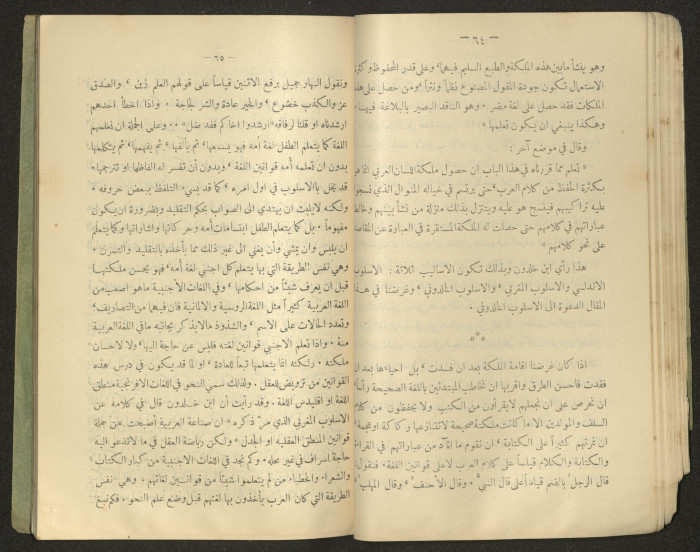 — ٦٤ —
وهو ينشأ ما بين هذه الملكة والطبع السليم فيهما، وعلى قدر المحفوظ وكثرة
الاستعمال تكون جودة المقول المصنوع نظماً ونثراً، ومن حصل على هذه
الملكات فقد حصل على لغة مضر ٠ وهو الناقد البصير بالبلاغة فيها ٠
وهكذا ينبغي ان يكون تعلمها»
وقال في موضع آخر :
« تعلم مما قررناه في هذا الباب ان حصول ملكة اللسان العربي انما هو
بكثرة الحفظ من كلام العرب، حتى يرتسم في خياله المنوال الذي نسجوا
عليه تراكيبهم فينسج هو عليه ويتنزل بذلك منزلة من نشأ بينهم وخالط
عباراتهم في كلامهم حتى حصلت له الملكة المستقرة في العبارة عن المقاصد
على نحو كلامهم »
هذا رأي ابن خلدون وبذلك تكون الاساليب ثلاثة : الاسلوب
الاندلسي والاسلوب المغربي، والاسلوب الخلدوني، وغرضنا في هذا
المقال الدعوة الى الاسلوب الخلدوني ٠
***
اذا كان غرضنا اقامة الملكة بعد ان فسدت، بل احياءها بعد ان
فقدت فاحسن الطرق واقربها ان نخاطب المبتدئين باللغة الصحيحة رأساً،
ان نحرص على ان نجعلهم لا يقرأون من الكتب ولا يحفظون من كلام
السلف والمولدين الا ما كانت ملكته صحيحة لا تتنازعها ركاكة او عجمة،
ان نمرنهم كثيراً على الكتابة، ان نقوم ما انآد من عباراتهم في القراءة
والكتابة والكلام قياساً على كلام العرب لا على قوانين اللغة، فنقول:
قال الرجلُ بالضم قياساً على قال النبيُّ، وقال الاحنفُ، وقال المهلبُ،
— ٦٥ —
ونقول النهار جميل برفع الاثنين قياساً على قولهم العلم زين، والصدق
عز والكذب خضوع، والخير عادة والشر لجاجة ٠ واذا اخطأ احدهم
ارشدناه او قلنا لرفاقه «ارشدوا اخاكم فقد ضل» ٠٠ وعلى الجملة ان نعلمهم
اللغة كما يتعلم الطفل لغة أمه فهو يسمعها، ثم يألفها، ثم يفهمها، ثم يتكلمها
بدون ان تعلمه أمه قوانين اللغة، وبدون أن تفسر له الفاظها او تترجمها ٠
قد يخل بالاسلوب في اول امره، كما قد يسيء التلفظ ببعض حروفه ٠
ولكنه لا يلبث ان يهتدي الى الصواب بحكم التقليد وبضرورة ان يكون
مفهوماً ٠ بل كما يتعلم الطفل ابتسامات أمه وحركاتها واشاراتها وكما يتعلم
ان يلبس وان يمشي وأن يغني الى غير ذلك مما يأخذه بالتقليد والتمرن ٠
وهي نفس الطريقة التي بها يتعلم كل اجنبي لغة أمه، فهو يحسن ملكتها
قبل ان يعرف شيئاً من احكامها، وفي اللغات الأجنبية ما هو اصعب من
اللغة العربية كثيراً مثل اللغة الروسية والالمانية فان فيهما من التصاريف،
وتعدد الحالات على الاسم، والشذوذ ما لا يذكر بجانبه ما في اللغة العربية
منهُ ٠ واذا تعلم الاجنبي قوانين لغته فليس عن حاجة اليها ولا لاحسان
ملكته ٠ ولكنه انما يتعلمها تبعاً للعادة، او لما قد يكون في درس هذه
القوانين من ترويض للعقل ٠ ولذلك سمي النحو في اللغات الافرنجية منطق
اللغة او اقليدس اللغة ٠ وقد رأيت أن ابن خلدون قال في كلامه عن
الاسلوب المغربي الذي مرّ ذكره «ان صناعة العربية أصبحت من جملة
قوانين المنطق العقلية او الجدل» ولكن رياضة العقل في ما لا تدعو اليه
حاجة إسراف في غير محله ٠ وكم نجد في اللغات الاجنبية من كبار الكتاب
والشعراء والخطباء من لم يتعلموا شيئاً من قوانين لغاتهم، وهي نفس
الطريقة التي كان العرب يأخذون بها لغتهم قبل وضع علم النحو، فكم نبغ